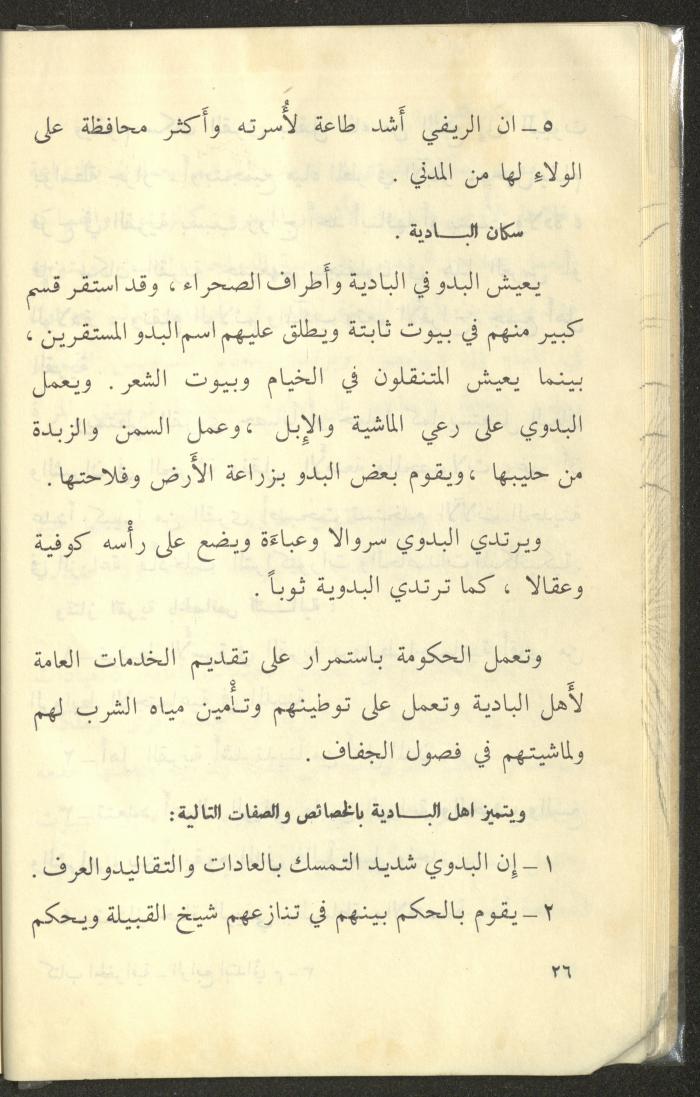 ٥ ـ ان الريفي أَشد طاعة لأُسرته وأَكثر محافظة على
الولاءِ لها من المدني .
سكان البـــادية .
يعيش البدو في البادية وأَطراف الصحراء ، وقد استقر قسم
كبير منهم في بيوت ثابتة ويطلق عليهم اسم البدو المستقرين ،
بينما يعيش المتنقلون في الخيام وبيوت الشعر . ويعمل
البدوي على رعي الماشية والإِبل ، وعمل السمن والزبدة
من حليبها ، ويقوم بعض البدو بزراعة الأَرض وفلاحتها .
ويرتدي البدوي سروالا وعباءَة ويضع على رأْسه كوفية
وعقالا ، كما ترتدي البدوية ثوباً .
وتعمل الحكومة باستمرار على تقديم الخدمات العامة
لأَهل البادية وتعمل على توطينهم وتأْمين مياه الشرب لهم
ولماشيتهم في فصول الجفاف .
ويتميز اهل البـــادية بالخصائص والصفات التالية :
١ ـ إِن البدوي شديد التمسك بالعادات والتقاليد والعرف .
٢ ـ يقوم بالحكم بينهم في تنازعهم شيخ القبيلة ويحكم
٢٦